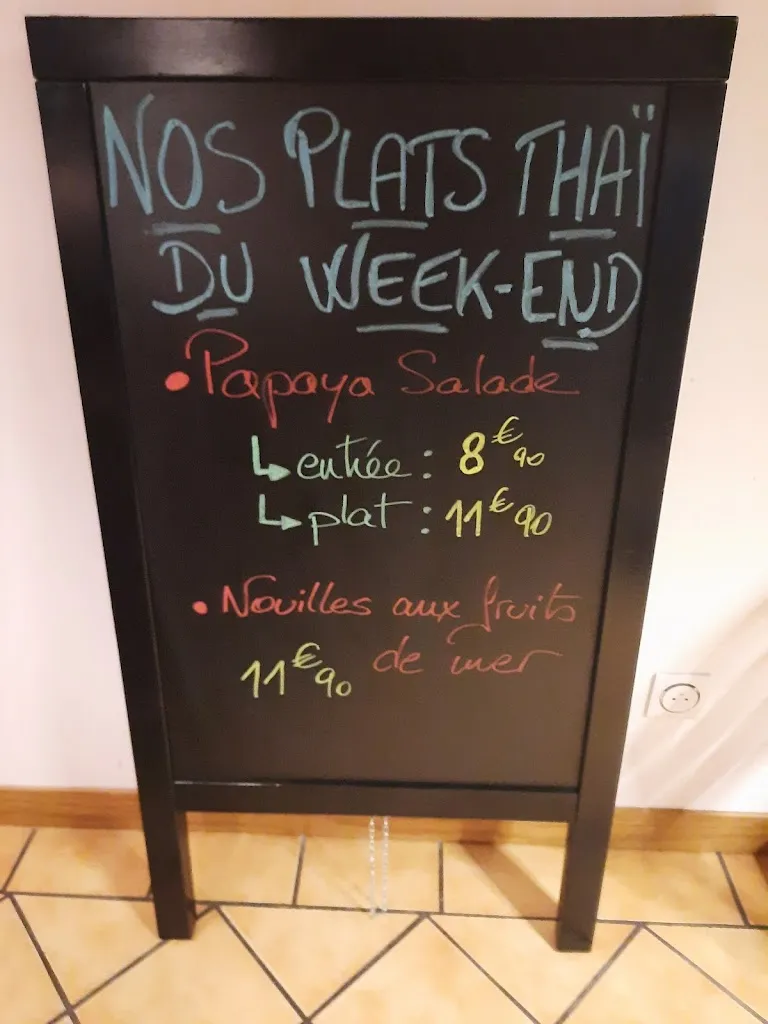 NOS PLATS THAÏ
DU WEEK-END
• Papaya Salade
↳ entrée : 8€90
↳ plat : 11€90
• Nouilles aux fruits
de mer
11€90